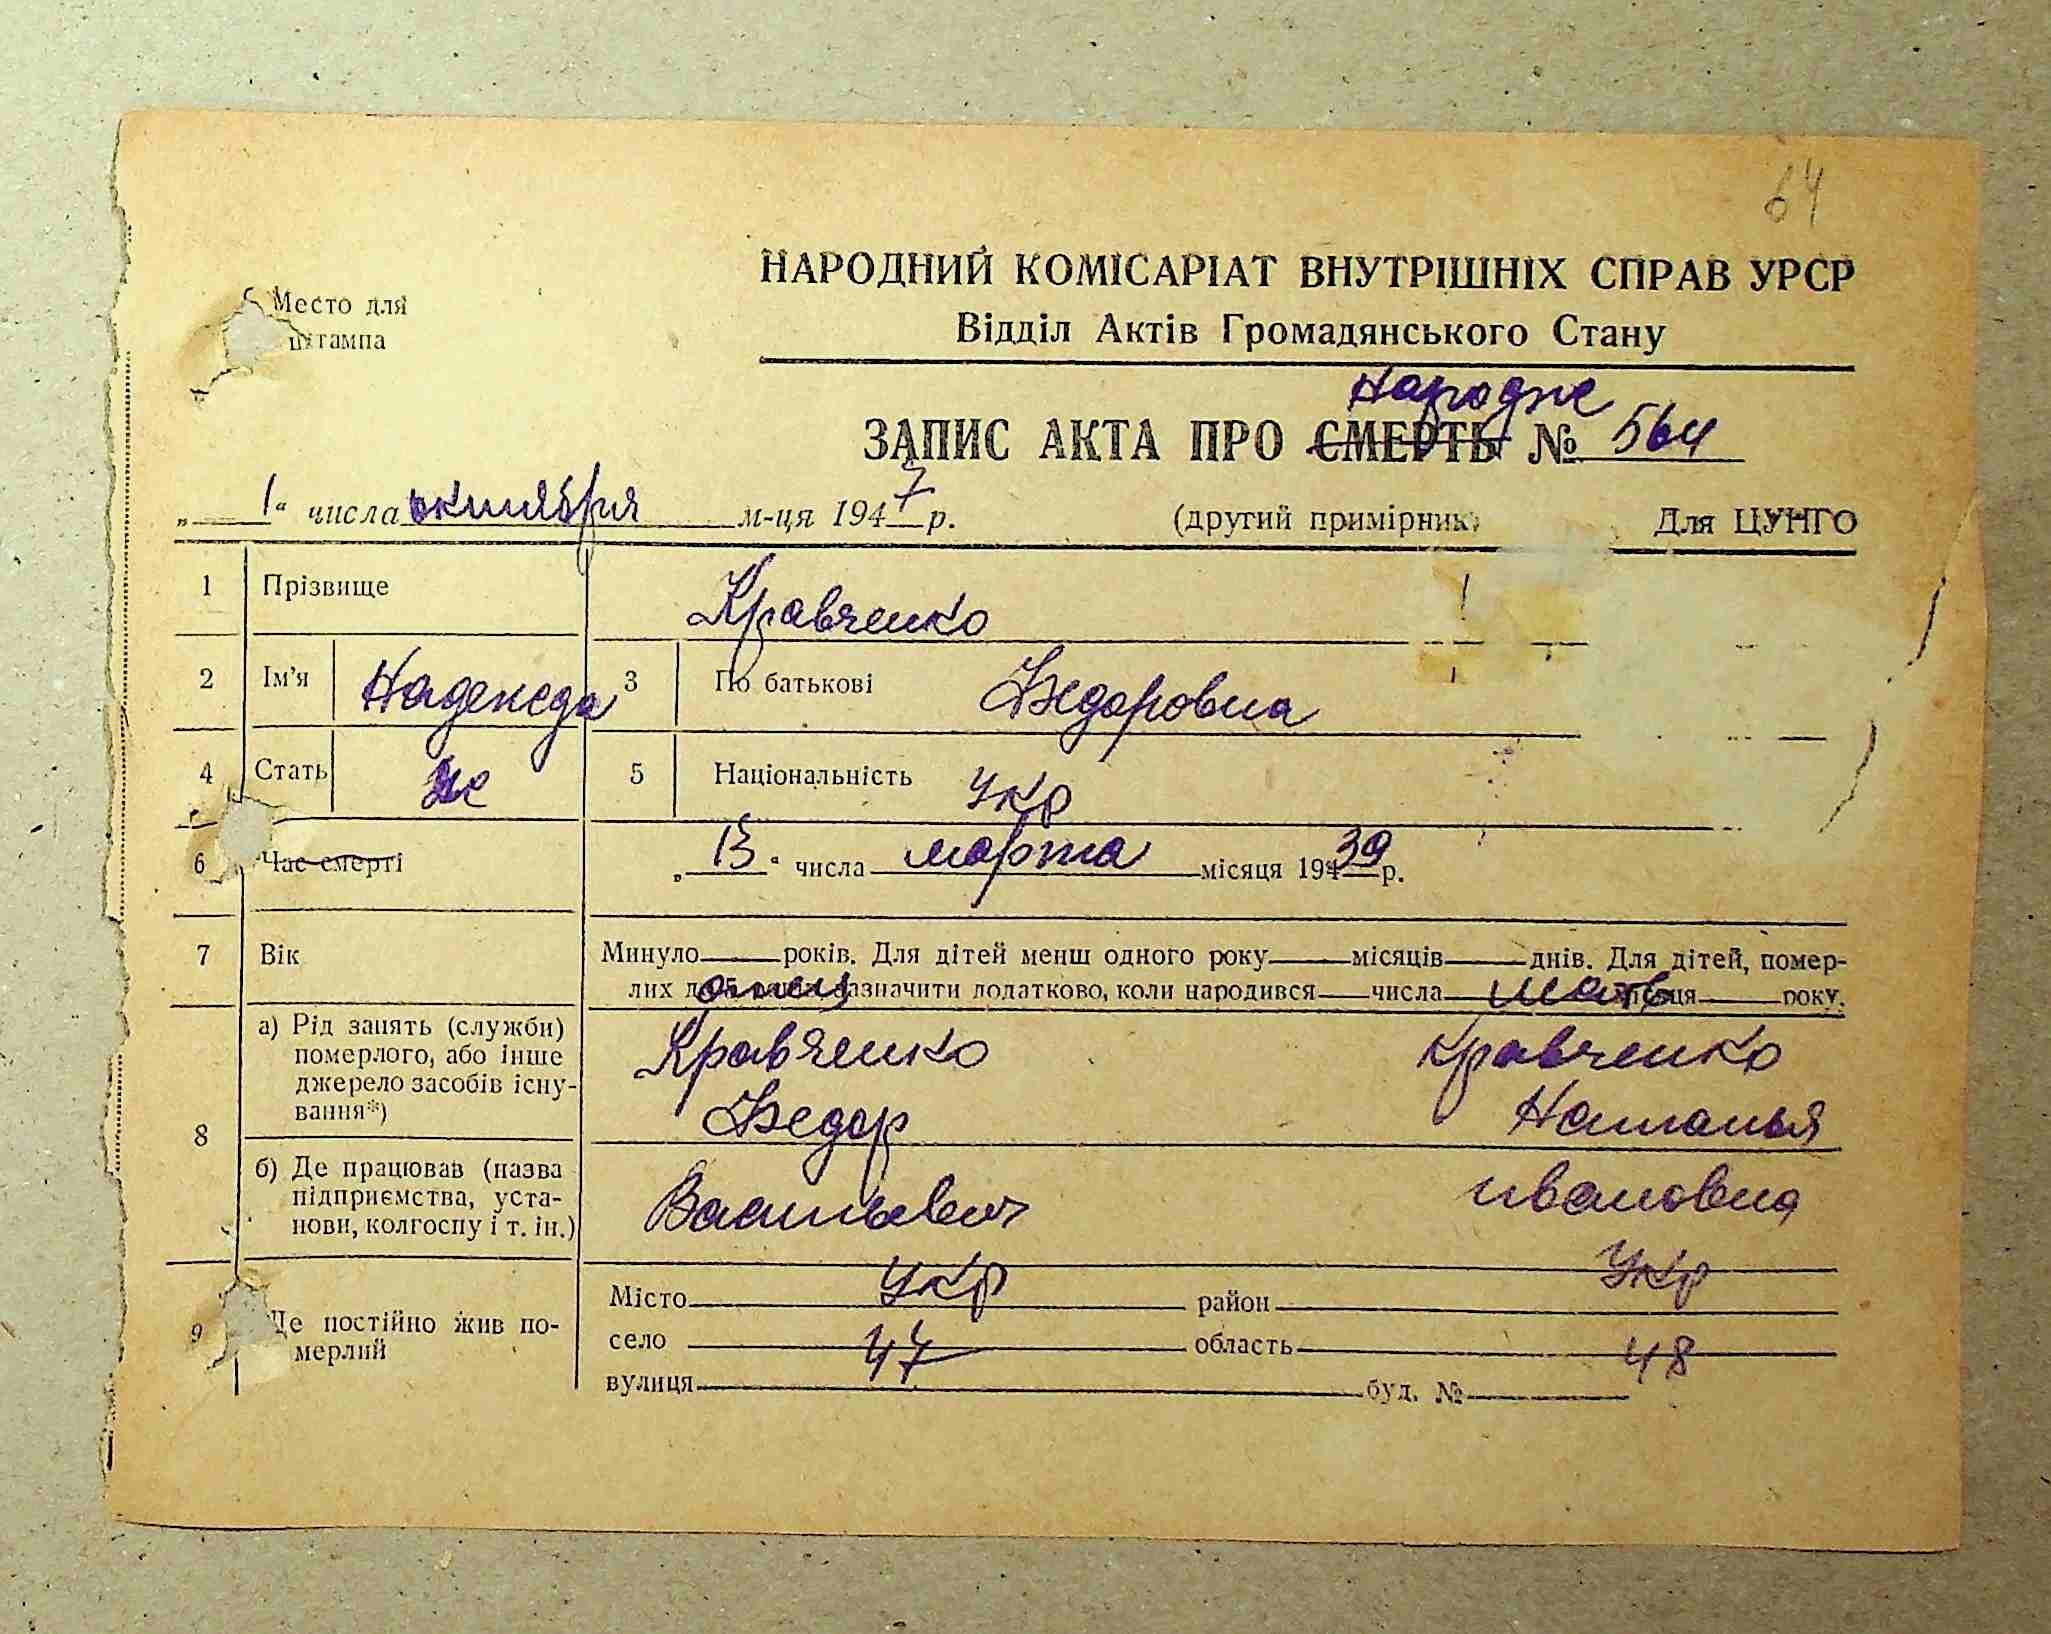 64
НАРОДНИЙ КОМІСАРІАТ ВНУТРІШНІХ СПРАВ УРСР
Место для
штампа
Відділ Актів Громадянського Стану
Народже
ЗАПИС АКТА ПРО СМЕРТЬ № 564
„ 1 “ числа октября м-ця 1947 р. (другий примірник) Для ЦУНГО
1 Прізвище Кравченко
2 Ім'я Надежда 3 По батькові Федоровна
4 Стать же 5 Національність укр
6 Час смерті „ 13 “ числа марта місяця 1939 р.
7 Вік Минуло років. Для дітей менш одного року місяців днів. Для дітей, помер-
лих зазначити додатково, коли народився числа місяця року.
отец мать
а) Рід занять (служби)
померлого, або інше
джерело засобів існу-
вання*)
Кравченко Кравченко
Федор Наталья
8
б) Де працював (назва
підприємства, уста-
нови, колгоспу і т. ін.)
Васильевич ивановна
укр укр
9 Де постійно жив по-
мерлий
Місто район
село 47 область 48
вулиця буд. №